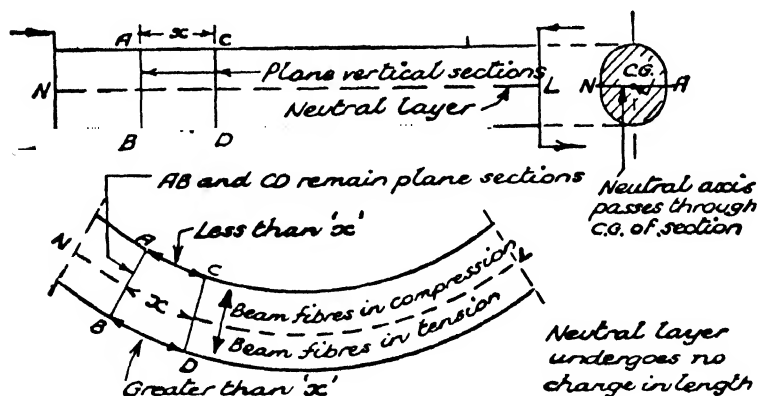 A x C
Plane vertical sections
N L N C.G. A
Neutral layer
B D
AB and CD remain plane sections
Neutral axis
passes through
C.G. of section
Less than 'x'
N A C L
x
Beam fibres in compression
Beam fibres in tension
B D
Greater than 'x'
Neutral layer
undergoes no
change in length